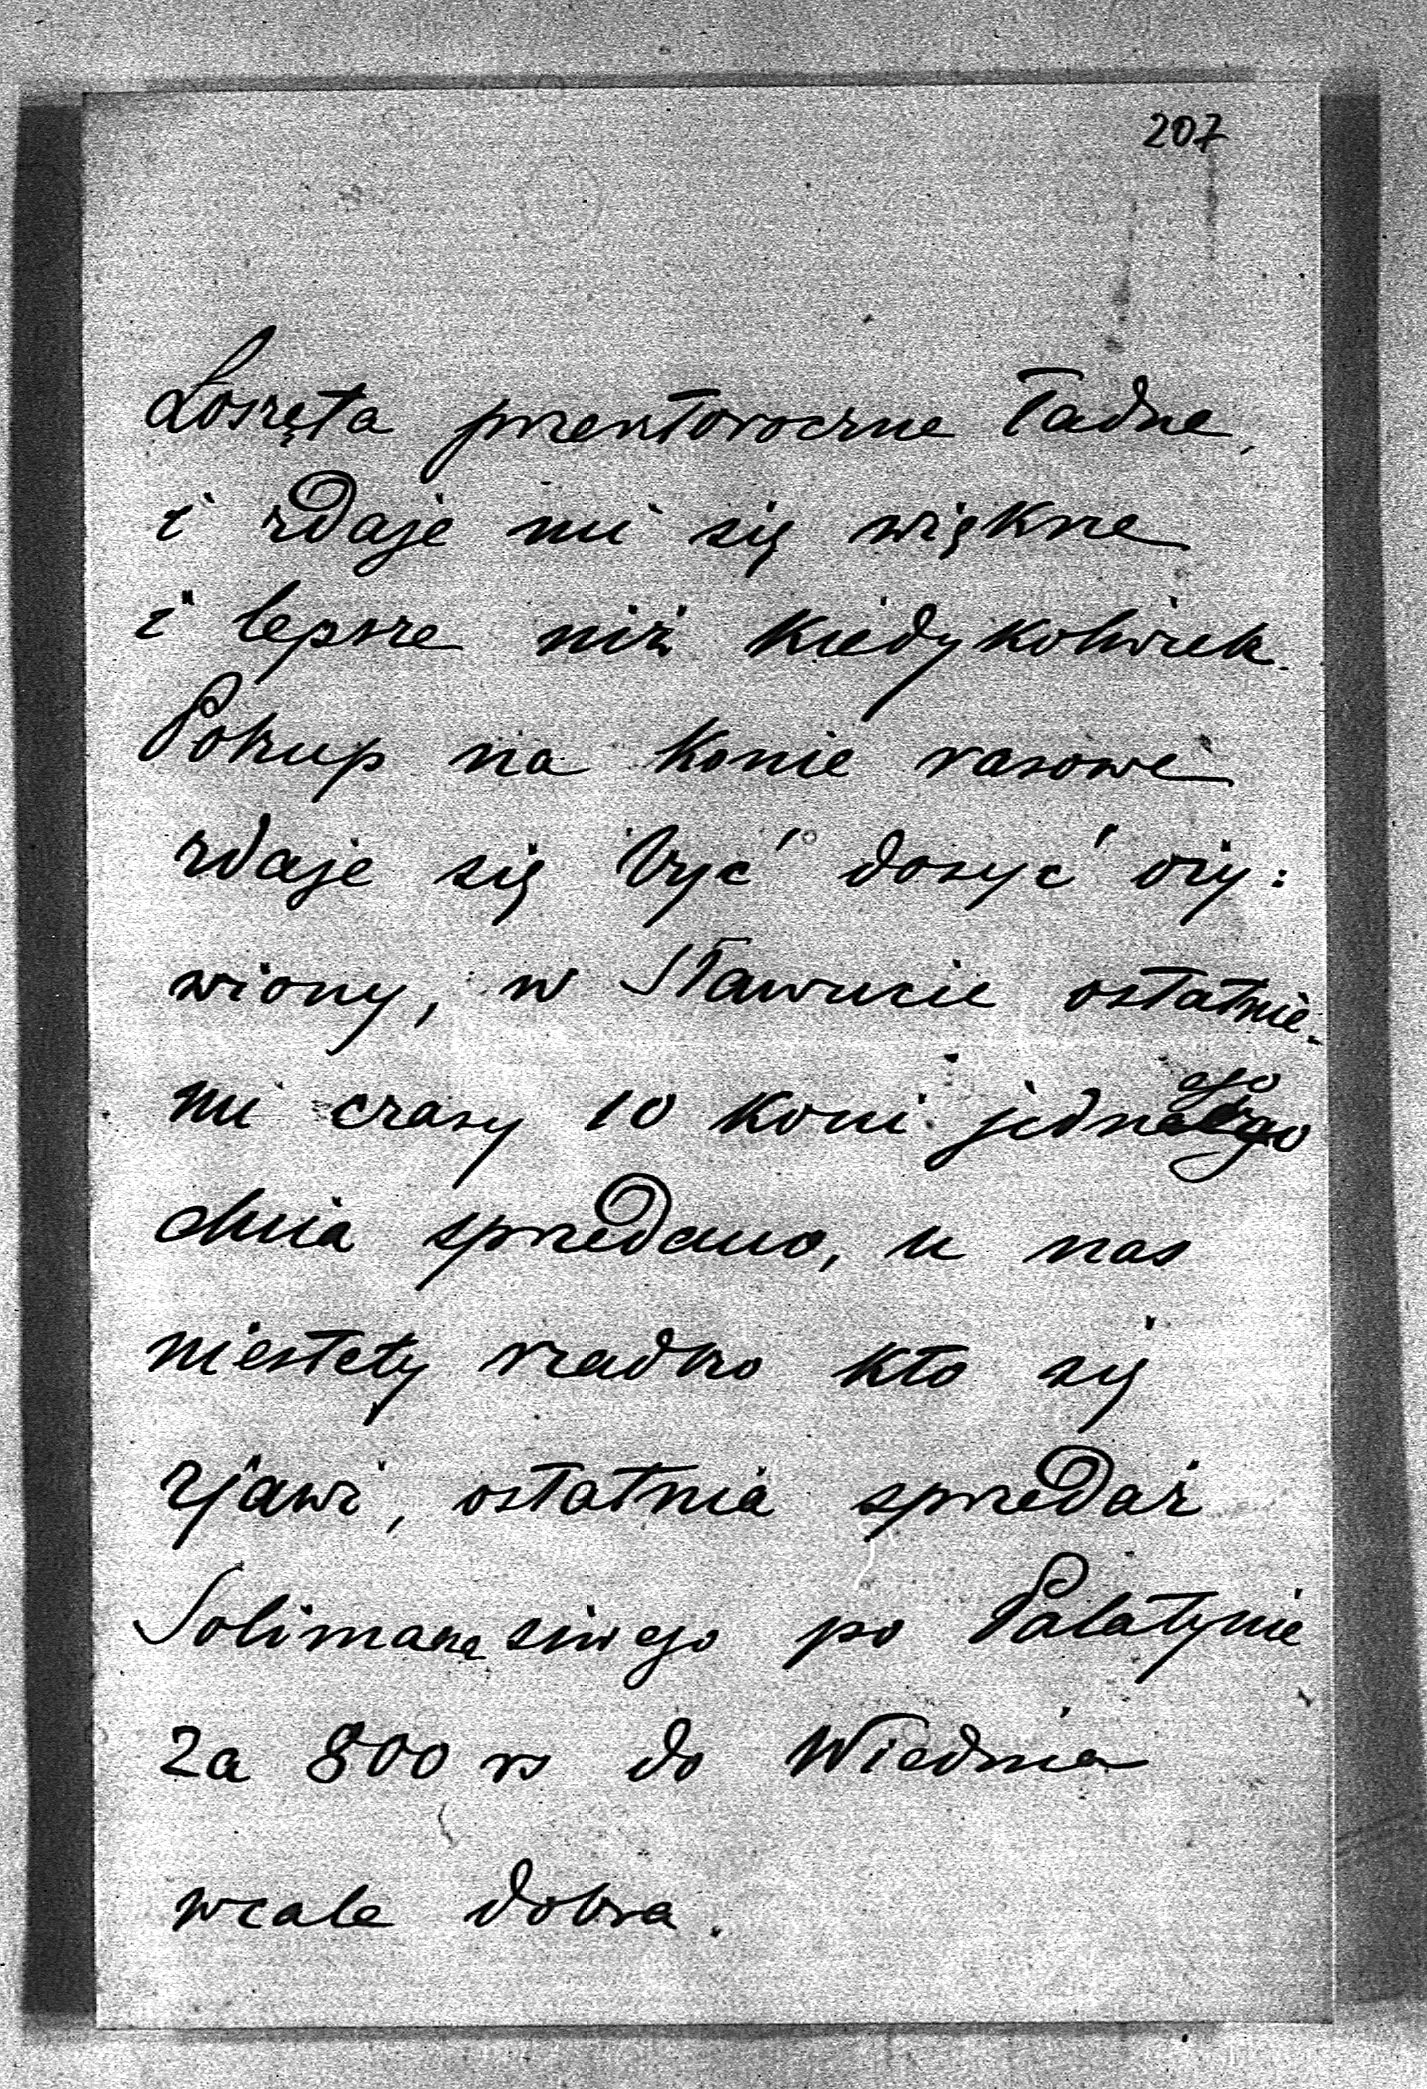 207
Loszęta przeszłoroczne ładne,
i zdaje mi się większe
i lepsze niż kiedykolwiek.
Pokup na konie rasowe
zdaje się być dosyć oży:
wiony, w Sławucie ostatnie-
mi czasy 10 koni jednego
dnia sprzedano, u nas
niestety rzadko kto się
zjawi, ostatnia sprzedaż
Solimana siwego po Palatynie
za 800 rs do Wiednia
wcale dobra.